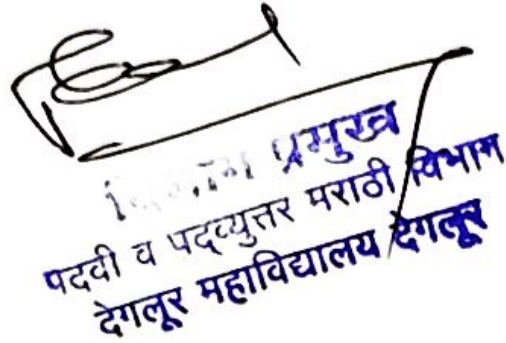 विभाग प्रमुख
पदवी व पदव्युत्तर मराठी विभाग
देगलूर महाविद्यालय देगलूर